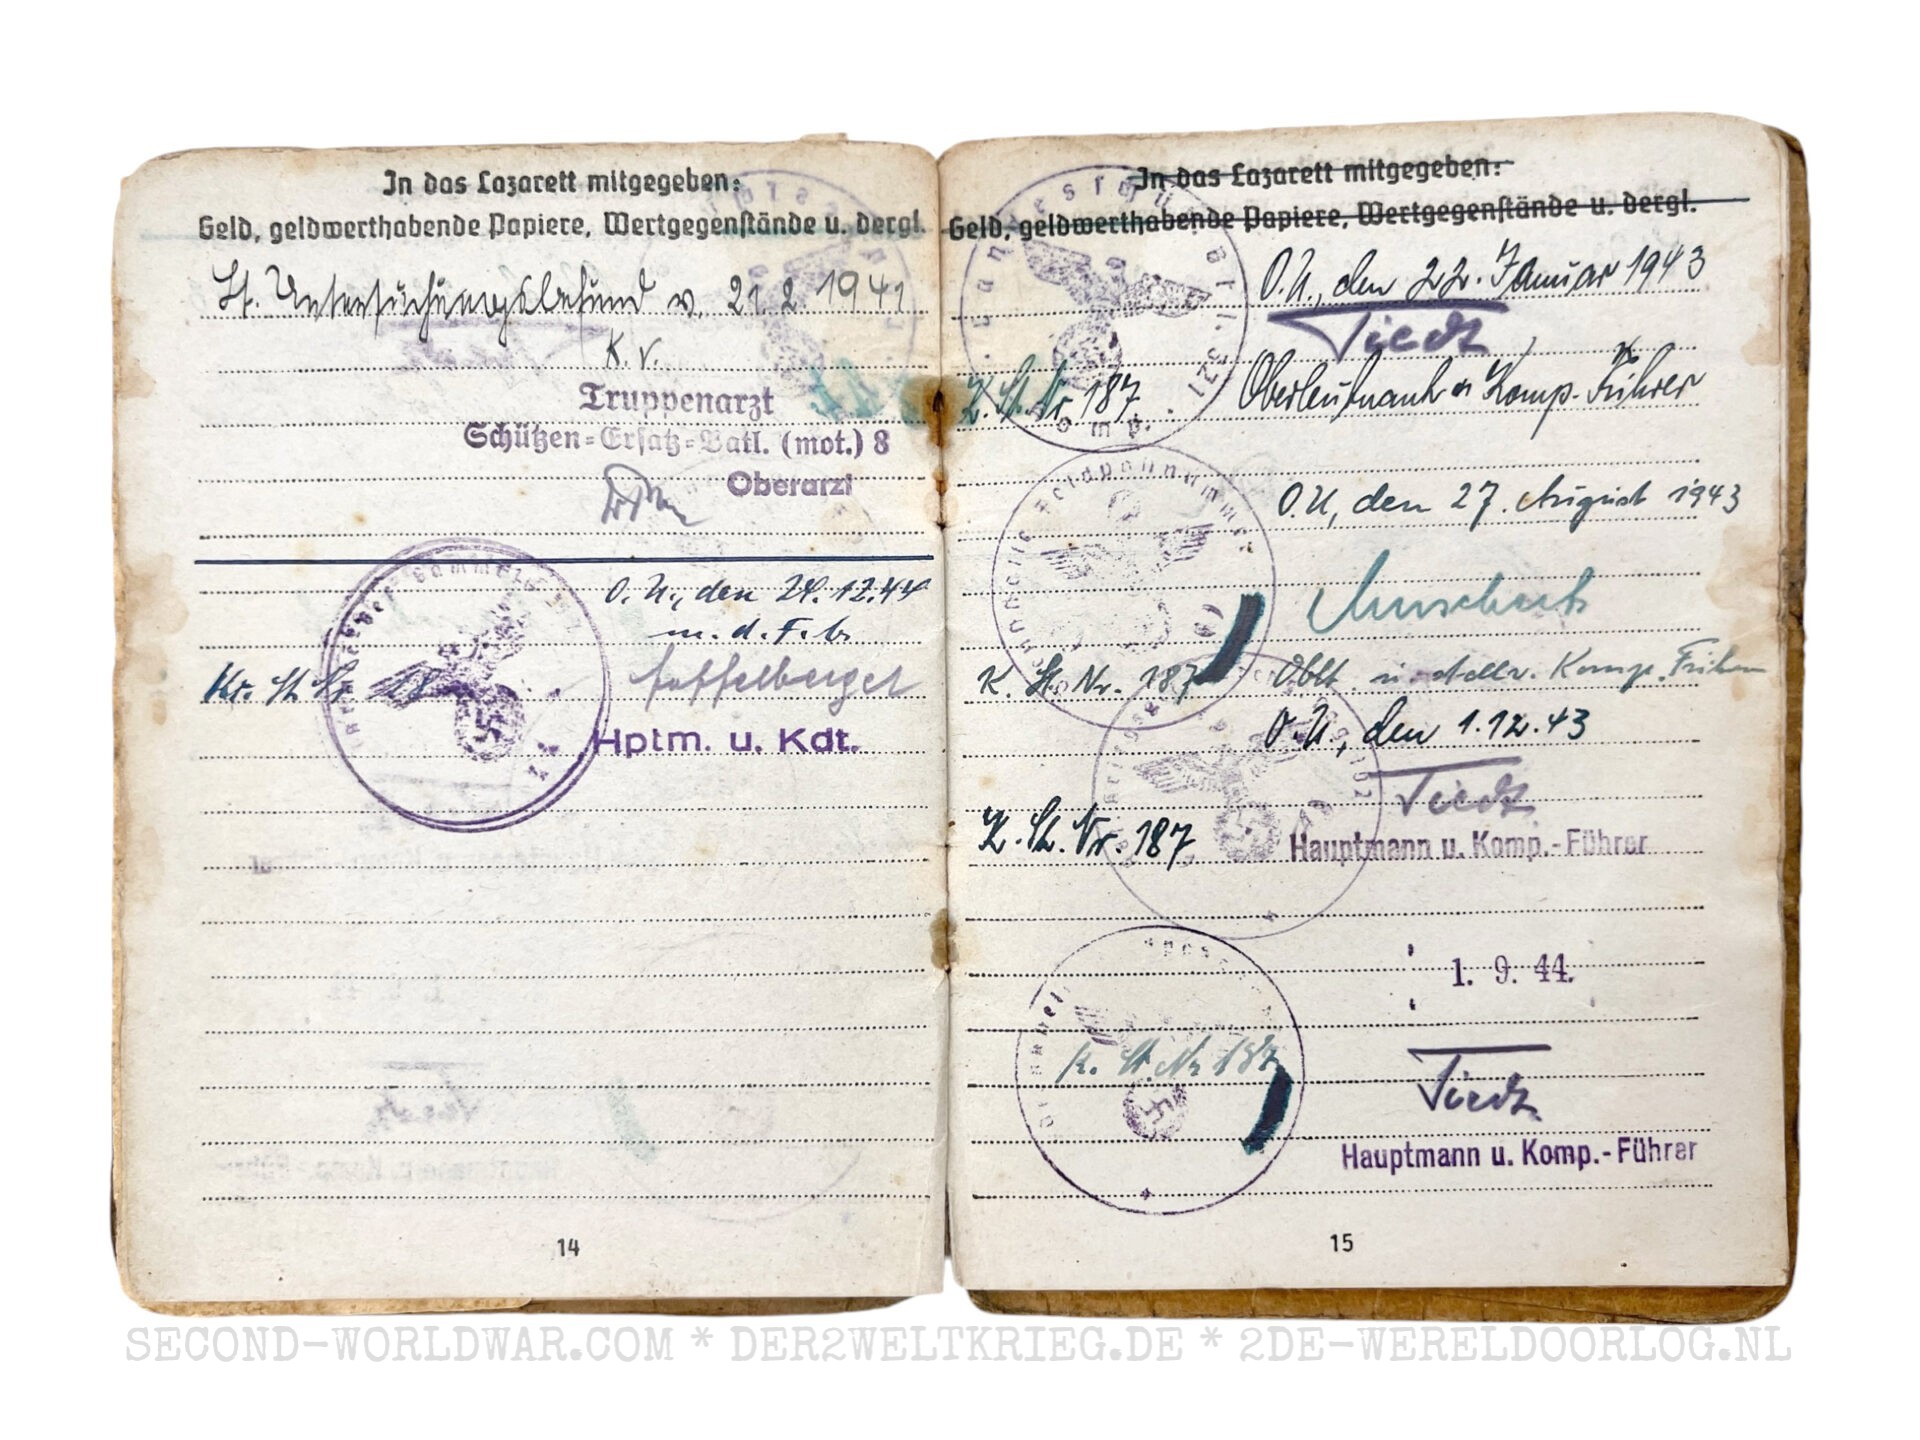 In das Lazarett mitgegeben:
Geld, geldwerthabende Papiere, Wertgegenstände u. dergl.
Lt. Untersuchungsbefund v. 21.2.1941
K.v.
Truppenarzt
Schützen-Ersatz-Batl. (mot.) 8
Oberarzt
O.U., den 24.12.44
Hptm. u. Kdt.
14
In das Lazarett mitgegeben:
Geld, geldwerthabende Papiere, Wertgegenstände u. dergl.
O.U., den 22. Januar 1943
Tiedt
K.St.Nr. 187 Oberleutnant u. Komp.-Führer
O.U, den 27. August 1943
K.St.Nr. 187 Oblt. u. stellv. Komp.Führer
O.U., den 1.12.43
Tiedt
K.St.Nr. 187
Hauptmann u. Komp.-Führer
1. 9. 44.
K.St.Nr 187
Tiedt
Hauptmann u. Komp.-Führer
15
SECOND-WORLDWAR.COM * DER2WELTKRIEG.DE * 2DE-WERELDOORLOG.NL